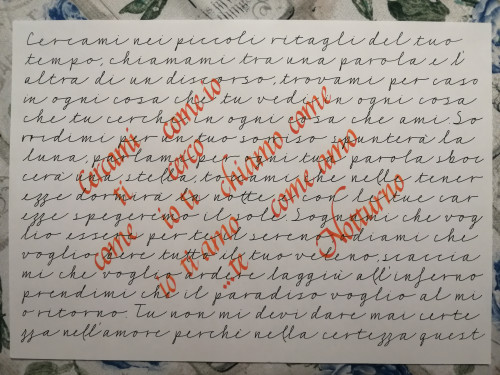 Cercami nei piccoli ritagli del tuo
tempo, chiamami tra una parola e l'
altra di un discorso, trovami per caso
in ogni cosa che tu vedi in ogni cosa
che tu cerchi in ogni cosa che ami. So
rridimi per un tuo sorriso spunterà la
luna, parlami per ogni tua parola sboc
cerà una stella, toccami che nelle tener
ezze dormirà la notte e con le tue car
ezze spegeremo il sole. Sognami che vog
lio essere per te il sereno, odiami che
voglio bere tutto il tuo veleno, scaccia
mi che voglio ardere laggiù all'inferno
prendimi che il paradiso voglio al mi
o ritorno. Tu non mi devi dare mai certe
zza nell'amore perché nella certezza quest
cercami come io
ti cerco
come io ti chiamo come
io ti amo come uomo
Notturno